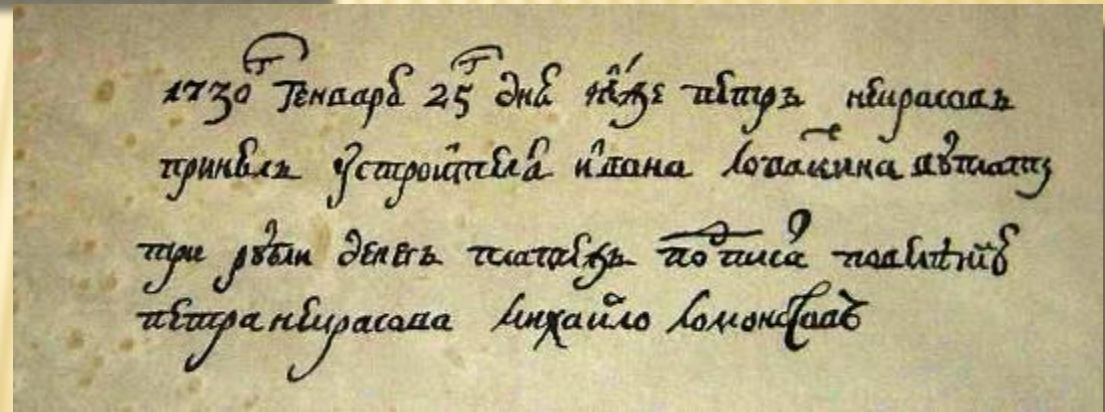 1730 г генваря 25 г дня петръ некрасовъ
принелъ ꙋстроителꙗ ивана лопаткина вꙋплатꙋ
три рꙋбли денегъ платежъ пописа повелѣнию
петра некрасова михайло ломоносовъ